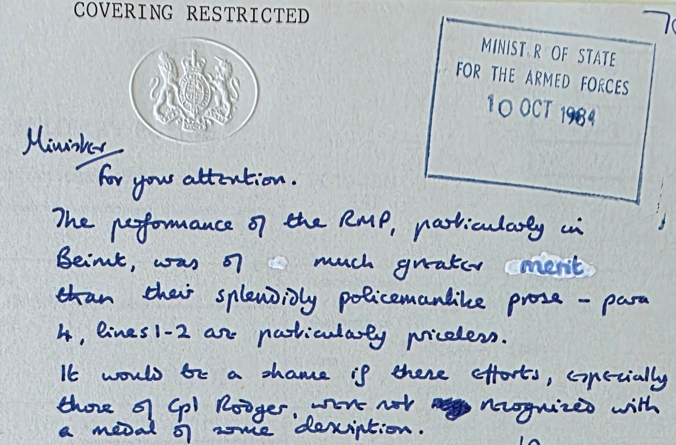 COVERING RESTRICTED
MINIST R OF STATE
FOR THE ARMED FORCES
10 OCT 1984
Minister
For your attention.
The performance of the RMP, particularly in
Beirut, was of much greater merit
than their splendidly policemanlike prose – para
4, lines 1-2 are particularly priceless.
It would be a shame if these efforts, especially
those of Cpl Rodger, were not recognized with
a medal of some description.